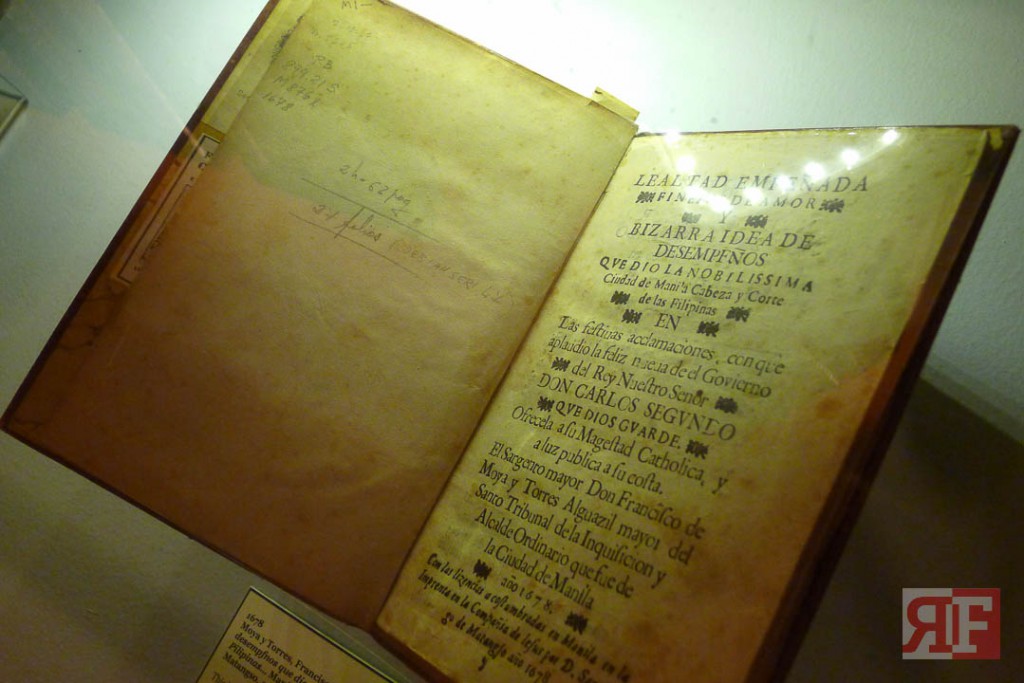 M1-
RB
899.215
M8758
1678
2h. 62pag
24 folios
LEALTAD EMPEÑADA
FINEZAS DE AMOR
Y
BIZARRA IDEA DE
DESEMPEÑOS
QVE DIO LA NOBILISSIMA
Ciudad de Manila Cabeza y Corte
de las Filipinas
EN
Las festiuas acclamaciones, con que
aplaudio la feliz nueua de el Govierno
del Rey Nuestro Señor
DON CARLOS SEGVNDO
QVE DIOS GVARDE.
Ofrecela a su Magestad Catholica, y
a luz publica a su costa.
El Sargento mayor Don Francisco de
Moya y Torres Alguazil mayor del
Santo Tribunal de la Inquisicion y
Alcalde Ordinario que fue de
la Ciudad de Manila
año 1678.
Con las licencias acostumbradas en Manila en la
Imprenta en la Compañia de Iesus por D. San
go de Matangso año 1678
1678
Moya y Torres, Francis
desempeños que di
Pilipinas... Man
Matangso,
RF